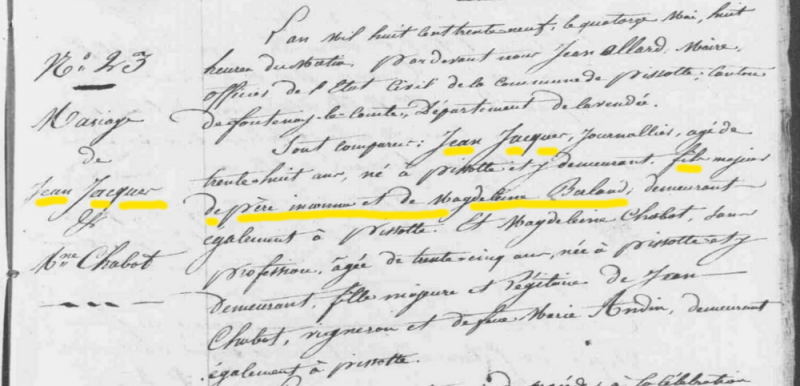 N.° 23
Mariage
de
Jean Jacques
&
M.ne Chabot
L'an mil huit cent trente-neuf, le quatorze Mai, huit
heures du Matin. Pardevant nous Jean Allard, Maire,
officier de l'Etat Civil de la Commune de pissotte, canton
de fontenay-le-comte, Département de la vendée.
Sont comparus: Jean Jacques, Journallier, agé de
trente huit ans, né à pissotte et y demeurant, fils majeur
de père inconnu et de Magdeleine Berland, demeurant
également à pissotte. Et Magdeleine Chabot, sans
profession, âgée de trente cinq ans, née à pissotte et y
demeurant, fille majeure et légitime de Jean
Chabot, vigneron et de feue Marie Andin, demeurant
également à pissotte.
à la célébration